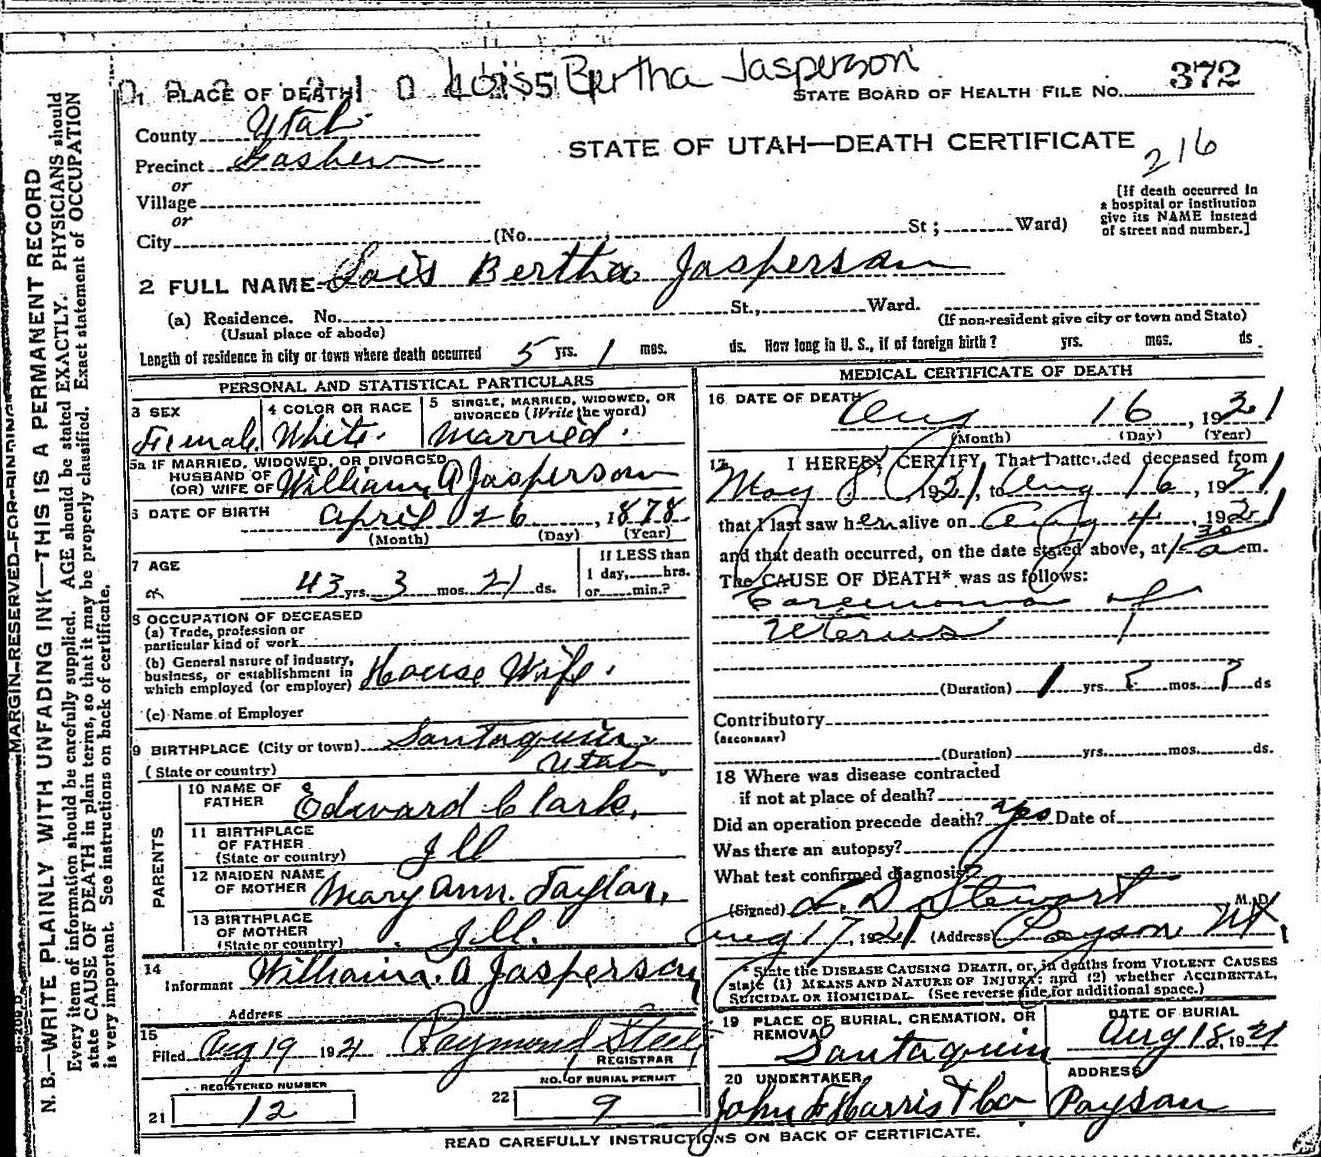 Lois Bertha Jasperson
1 PLACE OF DEATH
STATE BOARD OF HEALTH FILE NO. 372
County Utah
STATE OF UTAH—DEATH CERTIFICATE
216
Precinct Goshen
or
Village
or
City (No. St; Ward)
[If death occurred in
a hospital or institution
give its NAME instead
of street and number.]
2 FULL NAME Lois Bertha Jasperson
(a) Residence. No. St., Ward.
(Usual place of abode)
(If non-resident give city or town and State)
Length of residence in city or town where death occurred 5 yrs. 1 mos. ds. How long in U. S., if of foreign birth? yrs. mos. ds.
PERSONAL AND STATISTICAL PARTICULARS
3 SEX
Female
4 COLOR OR RACE
White.
5 SINGLE, MARRIED, WIDOWED, OR
DIVORCED (Write the word)
Married.
5a IF MARRIED, WIDOWED, OR DIVORCED
HUSBAND OF
(OR) WIFE OF William A Jasperson
6 DATE OF BIRTH April 26, 1878
(Month) (Day) (Year)
7 AGE
43 yrs. 3 mos. 21 ds.
If LESS than
1 day, hrs.
or min.?
8 OCCUPATION OF DECEASED
(a) Trade, profession or
particular kind of work
(b) General nature of industry,
business, or establishment in
which employed (or employer) House Wife.
(c) Name of Employer
9 BIRTHPLACE (City or town) Santaquin
(State or country) Utah.
PARENTS
10 NAME OF
FATHER Edward Clark,
11 BIRTHPLACE
OF FATHER
(State or country) Ill
12 MAIDEN NAME
OF MOTHER Mary Ann. Taylor,
13 BIRTHPLACE
OF MOTHER
(State or country) Ill.
14
Informant William. A Jasperson
Address
15
Filed Aug 19 1921 Raymond Steel
REGISTRAR
REGISTERED NUMBER
21 12
NO. OF BURIAL PERMIT
22 9
MEDICAL CERTIFICATE OF DEATH
16 DATE OF DEATH
Aug 16, 1921
(Month) (Day) (Year)
17 I HEREBY CERTIFY, That I attended deceased from
May 8, 1921, to Aug 16, 1921,
that I last saw her alive on Aug 4, 1921
and that death occurred, on the date stated above, at 1 30 a m.
The CAUSE OF DEATH* was as follows:
Carcinoma of
Uterus
(Duration) 1 yrs. ? mos. ? ds
Contributory
(SECONDARY)
(Duration) yrs. mos. ds.
18 Where was disease contracted
if not at place of death?
Did an operation precede death? Yes Date of
Was there an autopsy?
What test confirmed diagnosis?
(Signed) L. D Stewart M. D.
Aug 17, 1921 (Address) Payson Ut
* State the DISEASE CAUSING DEATH, or, in deaths from VIOLENT CAUSES
state (1) MEANS AND NATURE OF INJURY; and (2) whether ACCIDENTAL,
SUICIDAL OR HOMICIDAL. (See reverse side for additional space.)
19 PLACE OF BURIAL, CREMATION, OR
REMOVAL
Santaquin
DATE OF BURIAL
Aug 18, 1921
20 UNDERTAKER
John F Harris & Co
ADDRESS
Payson
READ CAREFULLY INSTRUCTIONS ON BACK OF CERTIFICATE.
MARGIN RESERVED FOR BINDING
N. B.—WRITE PLAINLY WITH UNFADING INK—THIS IS A PERMANENT RECORD
Every item of information should be carefully supplied. AGE should be stated EXACTLY. PHYSICIANS should
state CAUSE OF DEATH in plain terms, so that it may be properly classified. Exact statement of OCCUPATION
is very important. See instructions on back of certificate.